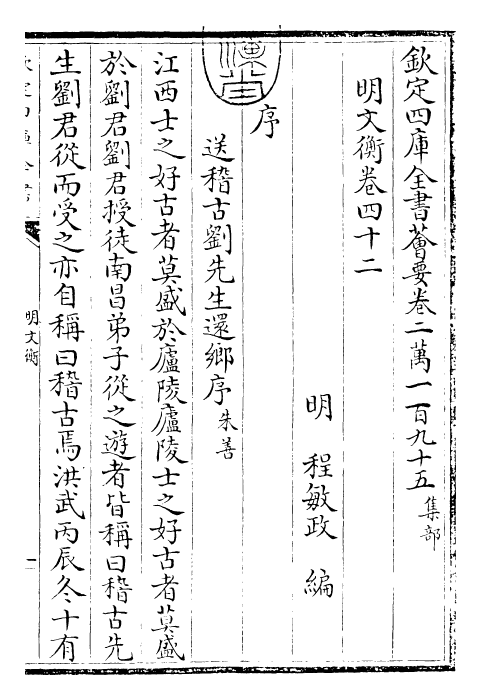 欽定四庫全書薈要卷二萬一百九十五 集部
明文衡卷四十二
明 程敏政 編
序
送稽古劉先生還鄉序 朱善
江西士之好古者莫盛於廬陵廬陵士之好古者莫盛
於劉君劉君授徒南昌弟子從之遊者皆稱曰稽古先
生劉君從而受之亦自稱曰稽古焉洪武丙辰冬十有
明文衡
一